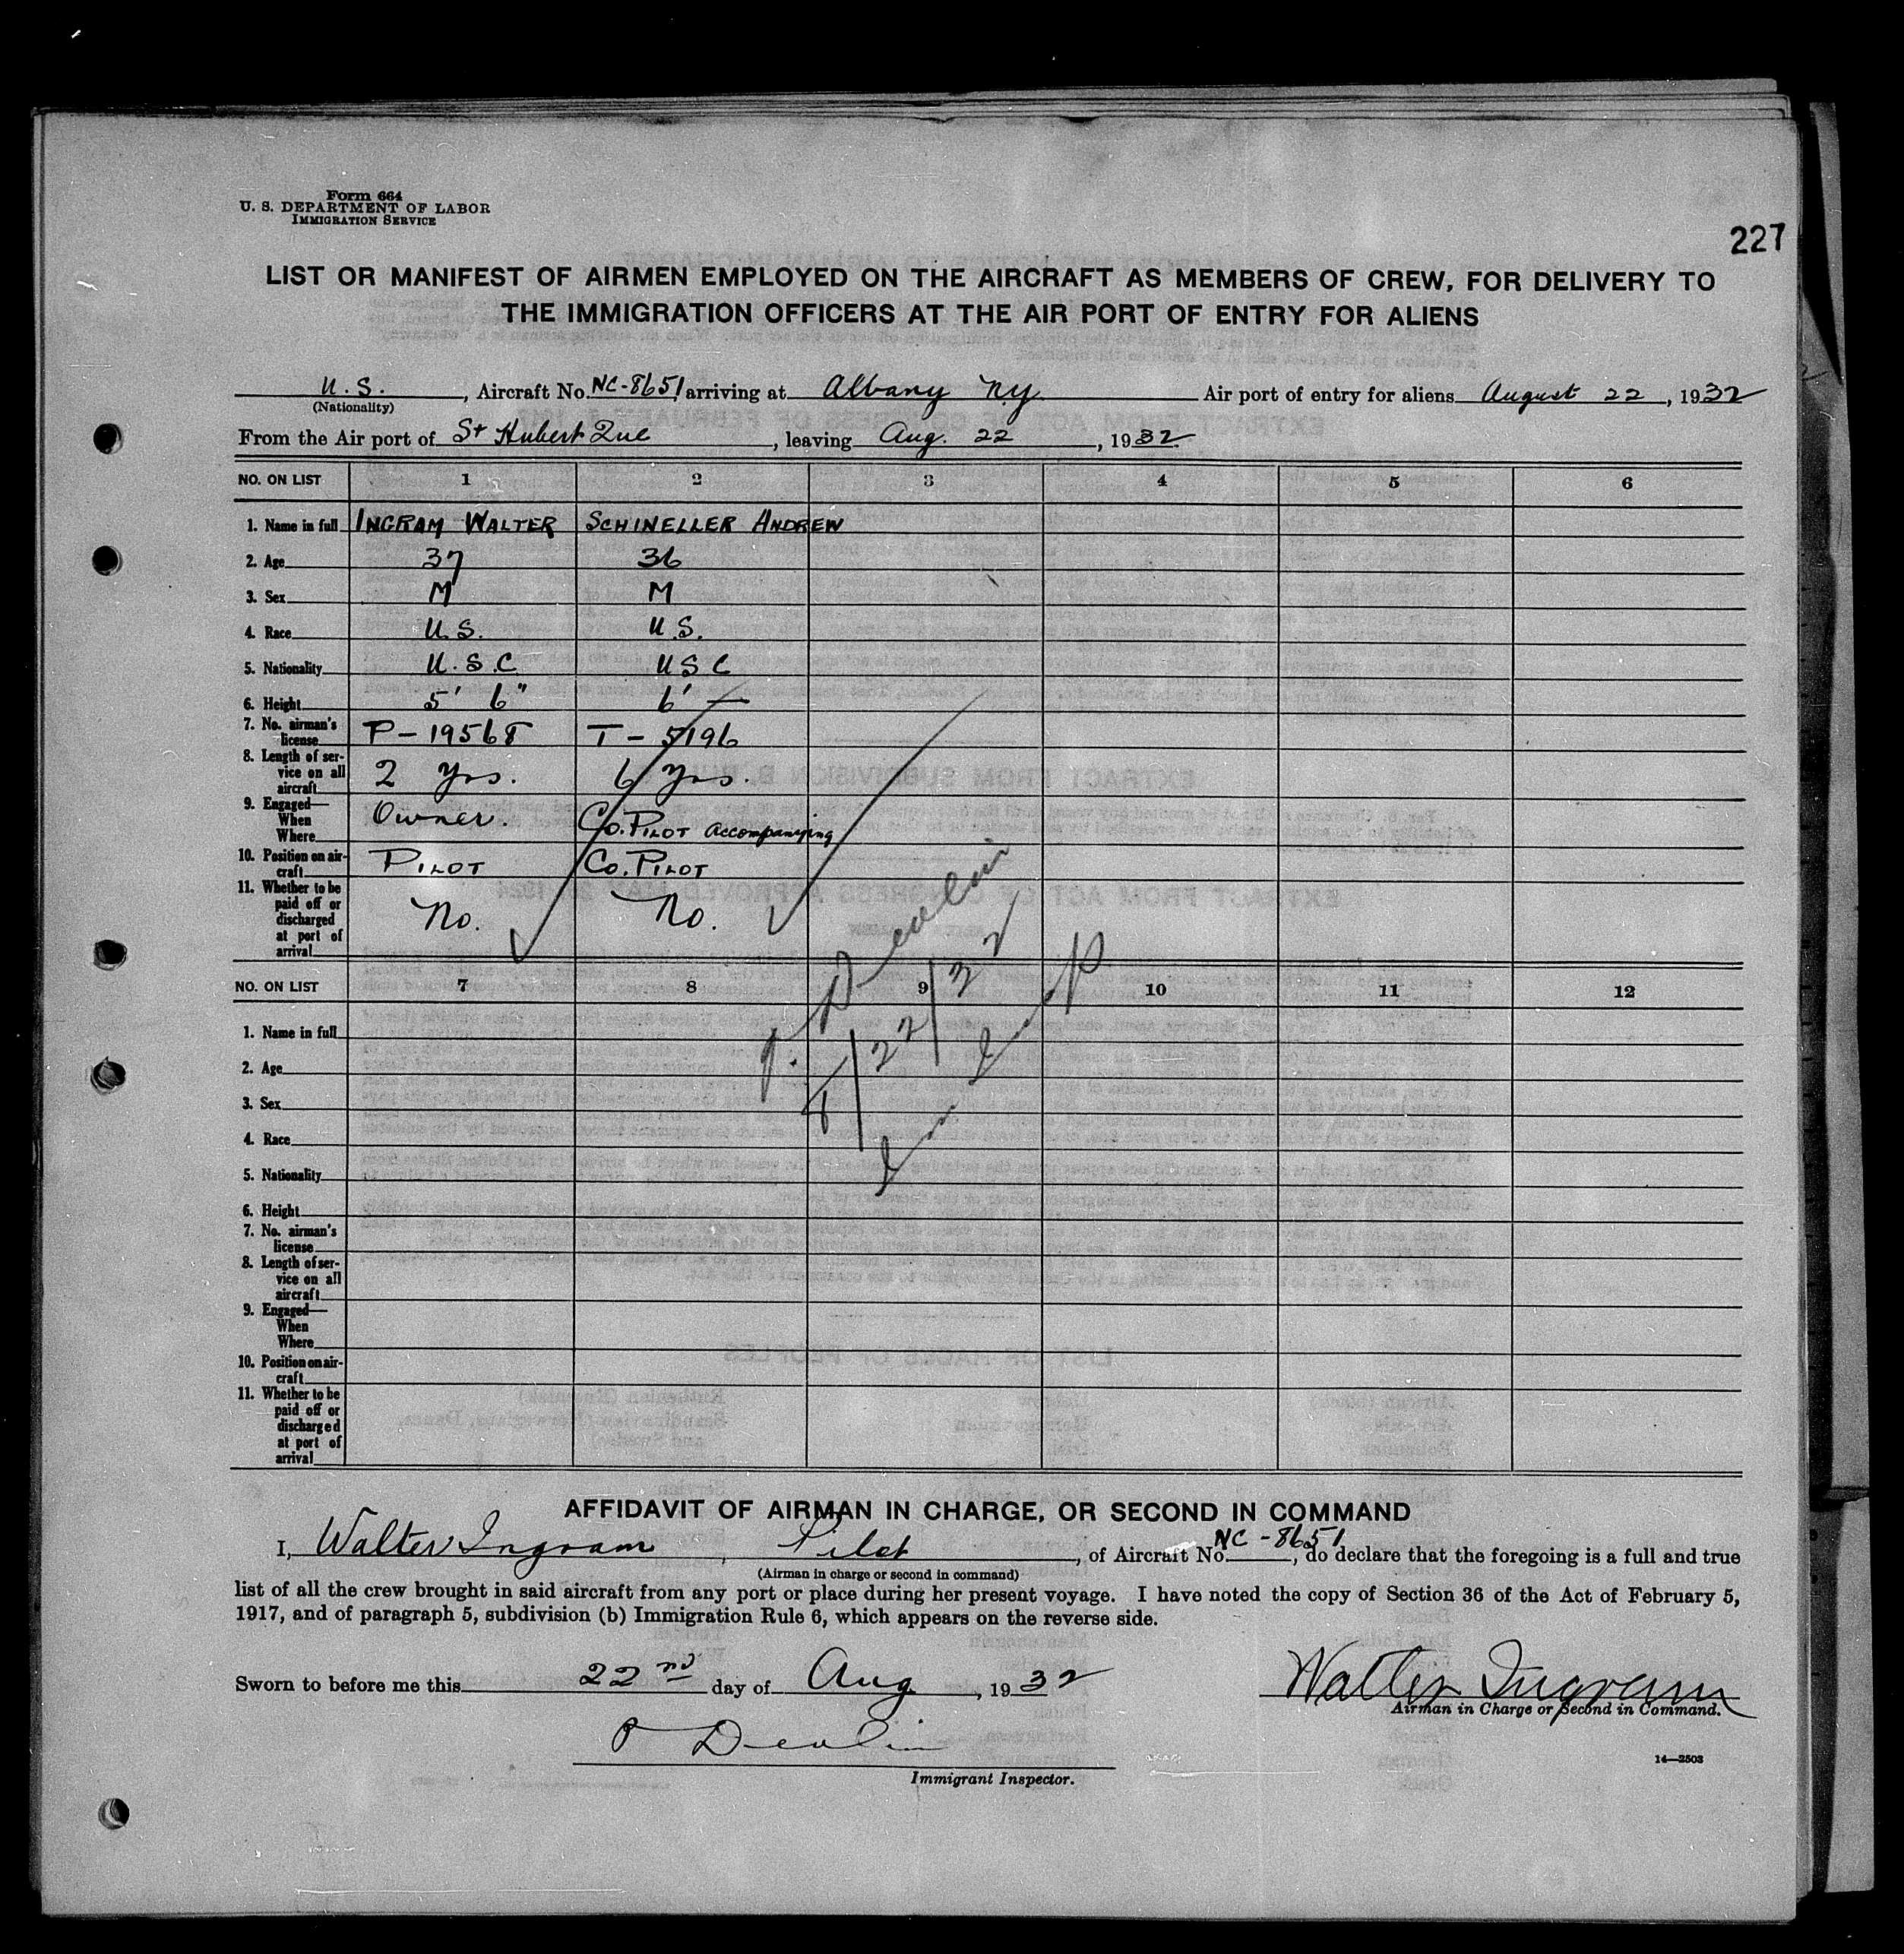 Form 664
U. S. DEPARTMENT OF LABOR
IMMIGRATION SERVICE
227
LIST OR MANIFEST OF AIRMEN EMPLOYED ON THE AIRCRAFT AS MEMBERS OF CREW, FOR DELIVERY TO
THE IMMIGRATION OFFICERS AT THE AIR PORT OF ENTRY FOR ALIENS
U.S., Aircraft No. NC-8651 arriving at Albany NY Air port of entry for aliens August 22, 1932
(Nationality)
From the Air port of St Hubert Que, leaving Aug. 22, 1932
NO. ON LIST 1 2 3 4 5 6
1. Name in full INGRAM WALTER SCHINELLER ANDREW
2. Age 37 36
3. Sex M M
4. Race U.S. U.S.
5. Nationality U.S.C USC
6. Height 5' 6" 6' —
7. No. airman's
license P-19568 T-5196
8. Length of ser-
vice on all
aircraft 2 yrs. 6 yrs.
9. Engaged—
When Owner. Co. PILOT accompanying
Where
10. Position on air-
craft PILOT CO. PILOT
11. Whether to be
paid off or
discharged No. No.
at port of
arrival
Devlin
8/22/32
Insp
NO. ON LIST 7 8 9 10 11 12
1. Name in full
2. Age
3. Sex
4. Race
5. Nationality
6. Height
7. No. airman's
license
8. Length of ser-
vice on all
aircraft
9. Engaged—
When
Where
10. Position on air-
craft
11. Whether to be
paid off or
discharged
at port of
arrival
AFFIDAVIT OF AIRMAN IN CHARGE, OR SECOND IN COMMAND
I, Walter Ingram, Pilot, of Aircraft No. NC-8651, do declare that the foregoing is a full and true
(Airman in charge or second in command)
list of all the crew brought in said aircraft from any port or place during her present voyage. I have noted the copy of Section 36 of the Act of February 5,
1917, and of paragraph 5, subdivision (b) Immigration Rule 6, which appears on the reverse side.
Sworn to before me this 22nd day of Aug, 1932
Walter Ingram
Airman in Charge or Second in Command.
Devlin
Immigrant Inspector.
14—2503